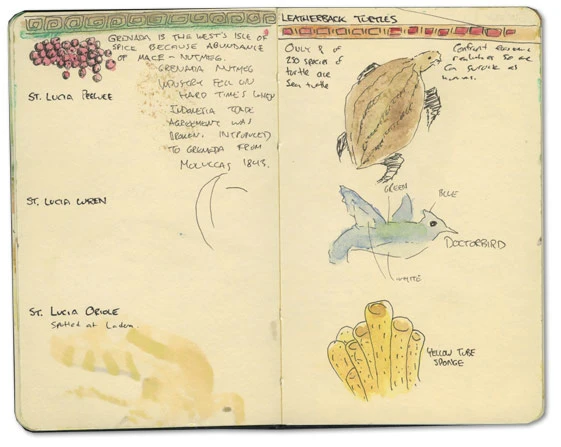 GRENADA IS THE WEST'S ISLE OF
SPICE BECAUSE ABUNDANCE
OF MACE - NUTMEG.
GRENADA NUTMEG
INDUSTRY FELL ON
HARD TIME'S WHEN
INDONESIA TRADE
AGREEMENT WAS
BROKEN. INTRODUCED
TO GRENADA FROM
MOLUCCAS 1843.
ST. LUCIA PEEWEE
ST. LUCIA WREN
ST. LUCIA ORIOLE
Spotted at Ladera.
LEATHERBACK TURTLES
ONLY 8 of
220 species of
turtle are
Sea turtle
Confront
realities so we
can survive as
humans.
GREEN
BLUE
DOCTORBIRD
WHITE
YELLOW TUBE
SPONGE